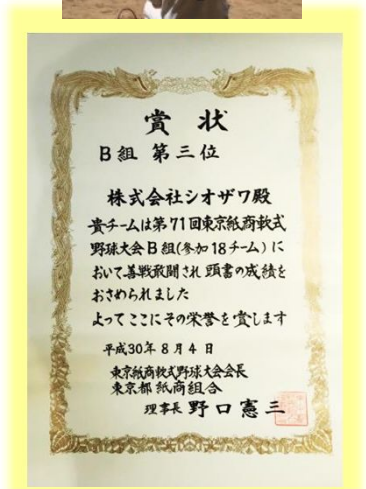 賞状
B組 第三位
株式会社シオザワ殿
貴チームは第71回東京紙商軟式
野球大会B組(参加18チーム)に
おいて善戦敢闘され頭書の成績を
おさめられました
よってここにその栄誉を賞します
平成30年8月4日
東京紙商軟式野球大会会長
東京都紙商組合
理事長 野口憲三